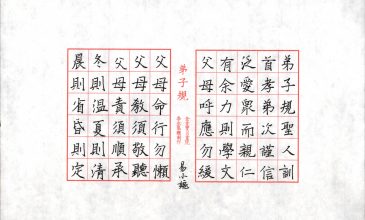 弟子規聖人訓
首孝弟次謹信
泛愛眾而親仁
有余力則學文
父母呼應勿緩
弟子規
父母命行勿懶
父母教須敬聽
父母責須順承
冬則温夏則清
晨則省昏則定